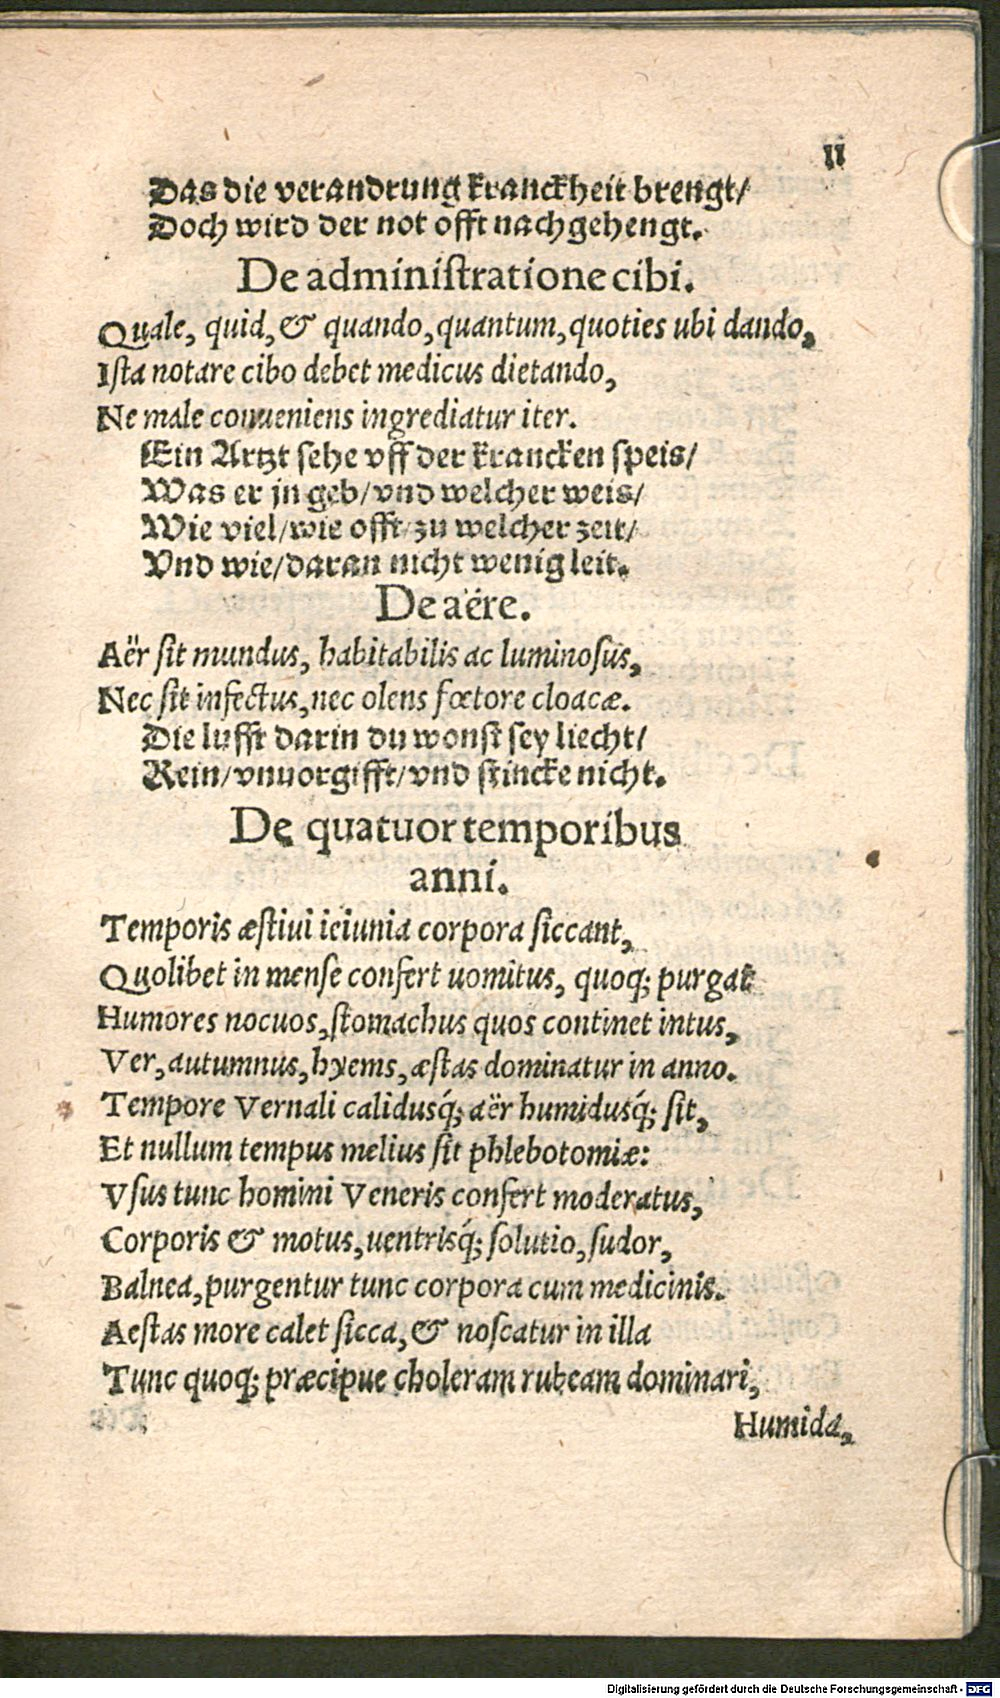 11
Das die verandrung kranckheit brengt/
Doch wird der not offt nachgehengt.
De administratione cibi.
Quale, quid, & quando, quantum, quoties ubi dando,
Ista notare cibo debet medicus dietando,
Ne male conueniens ingrediatur iter.
Ein Artzt sehe vff der krancken speis/
Was er jn geb/vnd welcher weis/
Wie viel/wie offt/zu welcher zeit/
Vnd wie/daran nicht wenig leit.
De aëre.
Aër sit mundus, habitabilis ac luminosus,
Nec sit infectus, nec olens fœtore cloacæ.
Die lufft darin du wonst sey liecht/
Rein/vnuorgifft/vnd stincke nicht.
De quatuor temporibus
anni.
Temporis æstiui ieiunia corpora siccant,
Quolibet in mense confert uomitus, quoq; purgat
Humores nocuos, stomachus quos continet intus,
Ver, autumnus, hyems, æstas dominatur in anno.
Tempore Vernali calidusq́; aër humidusq́; sit,
Et nullum tempus melius sit phlebotomiæ:
Vsus tunc homini Veneris confert moderatus,
Corporis & motus, uentrisq́; solutio, sudor,
Balnea, purgentur tunc corpora cum medicinis.
Aestas more calet sicca, & noscatur in illa
Tunc quoq; præcipue choleram rubeam dominari,
Humida,
Digitalisierung gefördert durch die Deutsche Forschungsgemeinschaft - DFG